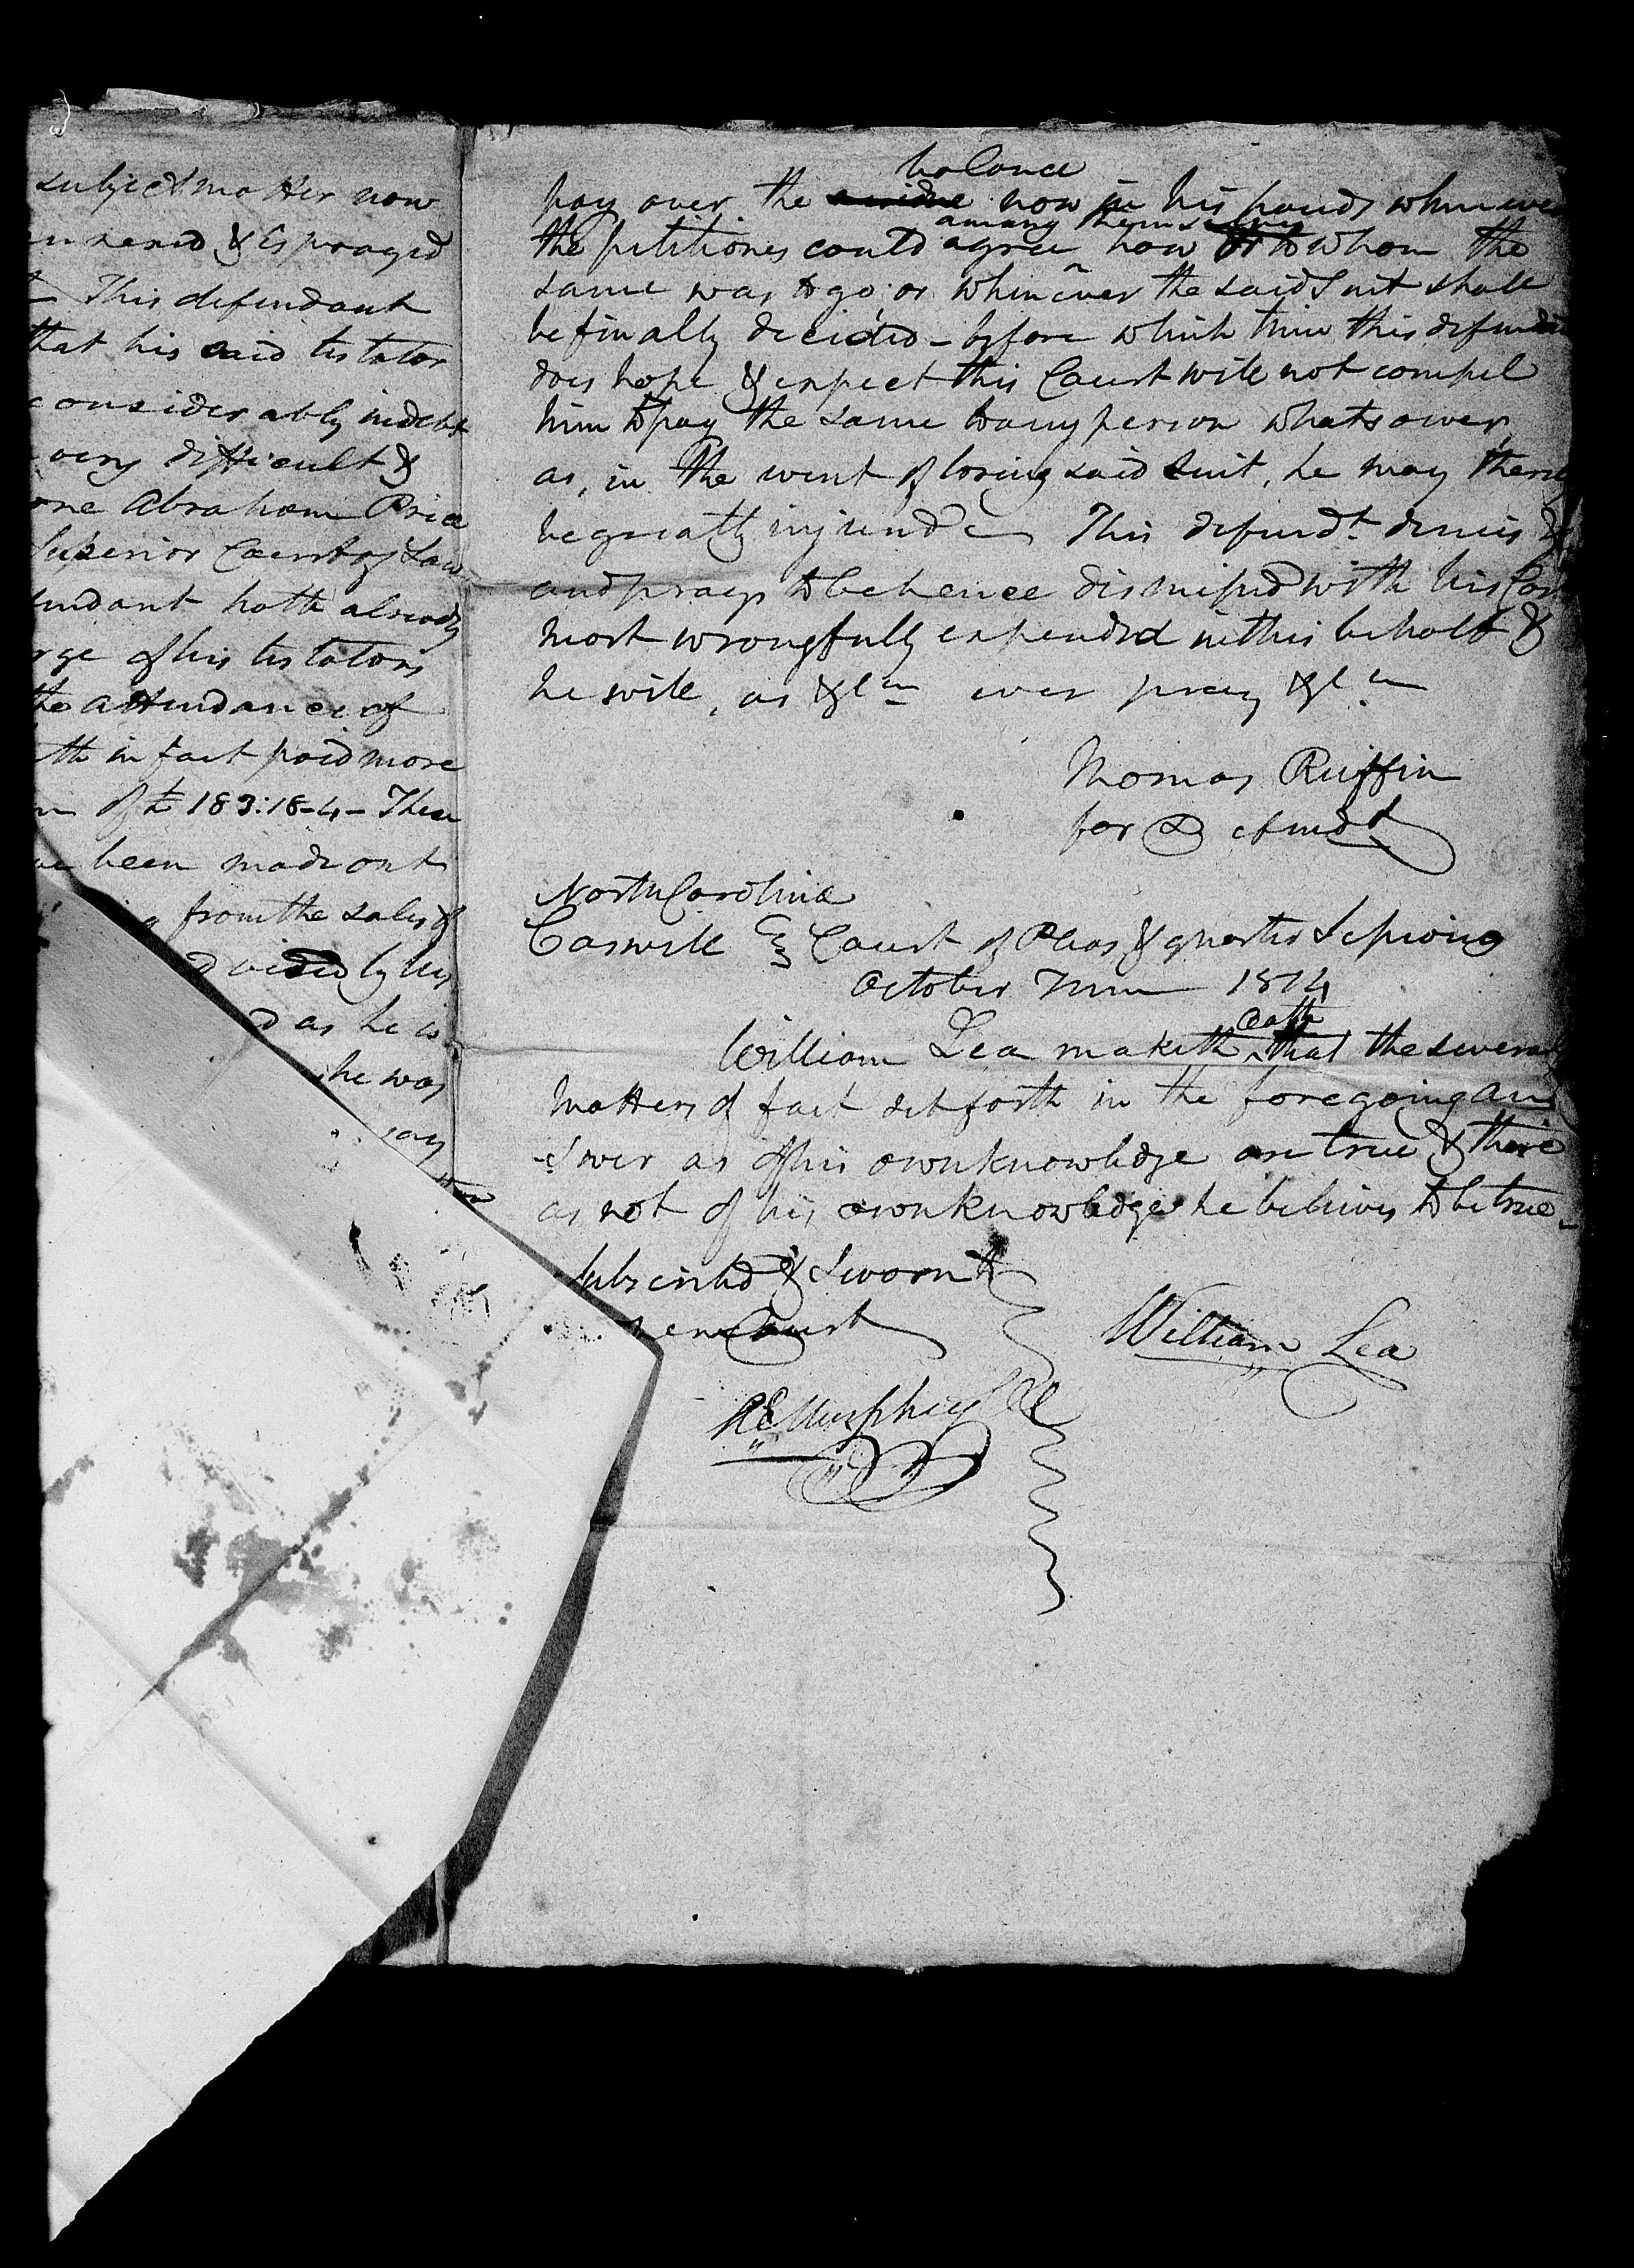 subject matter now
& is prayed
This defendant
that his said testator
considerably indebt
very difficult &
one Abraham Price
Superior Court of Law
fendant hath already
rge of his testators
the attendance of
th in fact paid more
of £ 183:18-4- These
been made out
from the sales of
d as he is
he was
say
balance
pay over the now in his hands whenever
among themselves
the petitioners could agree how or to whom the
same was to go or whenever the said Suit shall
be finally decided - before which time this defendant
does hope & expect this Court will not compel
him to pay the same to any person whatsoever,
as, in the event of losing said Suit, he may thereby
be greatly injured This defendt. denies &c
and prays to be hence dismissed with his Cos
most wrongfully expended in this behalf &
he will, as &c ever pray &c
Thomas Ruffin
for Defendt
North Carolina
Caswell Court of Pleas & quarter Sessions
October Term 1814
oath
William Lea maketh ^ that the several
matters of fact set forth in the foregoing An
-swer as of his own knowledge are true & those
as not of his own knowledge he believes to be true -
Subscribed & Sworn to
pen Court
William Lea
Murphey